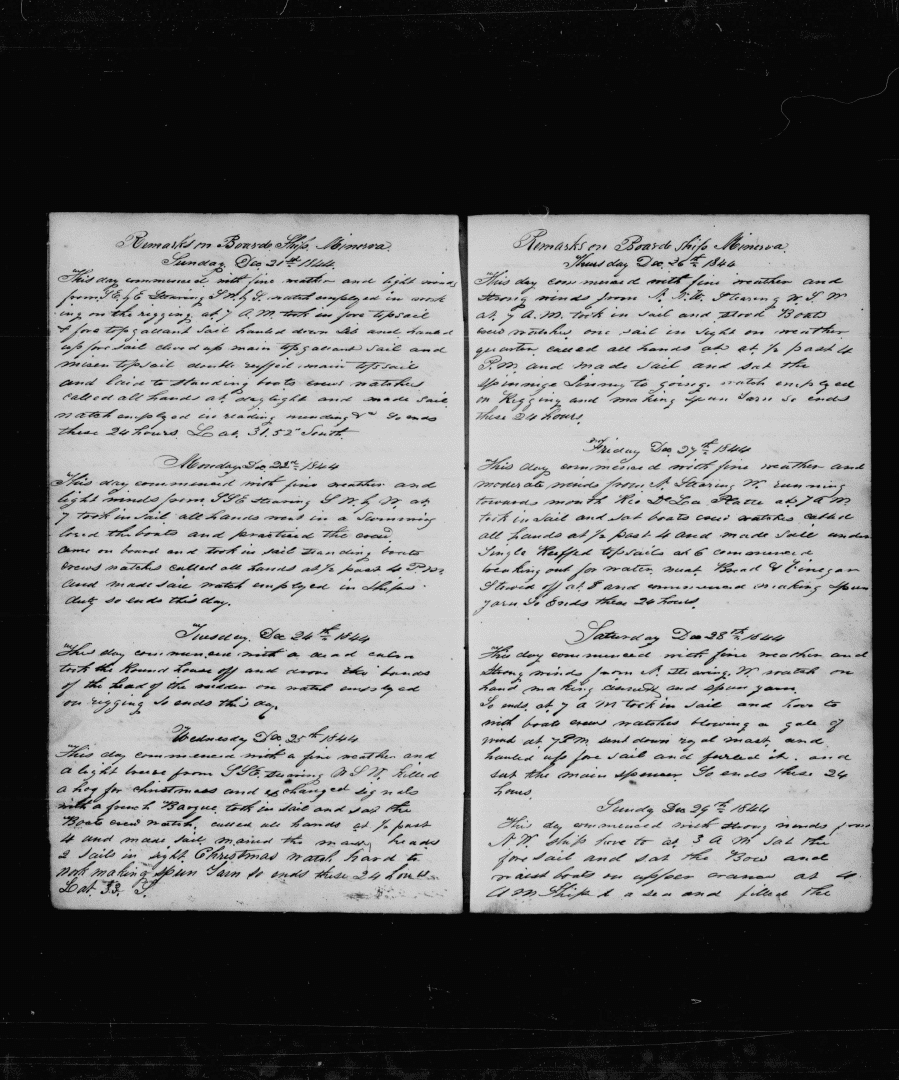 Remarks on Board Ship Minerva
Sunday Dec 21st 1844
This day commenced with fine weather and light winds
from S.E. by E Stearing S W by S. watch employed in work
ing on the rigging. at 7 A.M. took in fore topsail
& fore topgallant Sail hauled down Jib and hauled
up fore sail clued up main topgallant sail and
mizen topsail double reffed main topsail
and laid to standing boats crews watches
called all hands at daylight and made sail
watch employed in reading mending &c So ends
these 24 hours. Lat. 31.52 South.
Monday Dec 22nd 1844
This day commenced with fine weather and
light winds from SSE stearing S W by W. at
7 took in sail. all hands went in a Swimming
lowd the boats and practised the crew
came on board and took in sail standing boats
crews watches called all hands at ½ past 4 P.M.
and made sail watch employed in Ships
duty so ends this day.
Tuesday. Dec 24th 1844
This day commenced with a dead calm
took the Round house off and drove the bands
of the head of the rudder on watch employed
on rigging So ends this day
Wednesday Dec 25th 1844
This day commenced with a fine weather and
a light breeze from SSE. stearing W S W. killed
a hog for christmass and exchanged signals
with a french Barque. took in sail and sat the
Boats crew watch, called all hands at ½ past
4 and made sail maned the mast heads
2 Sails in sight Christmas watch hard to
work making spun yarn so ends these 24 hours.
Lat. 33. S.
Remarks on Board Ship Minerva
Thursday Dec. 26th 1844
This day commenced with fine weather and
Strong winds from N.N.W. Stearing W S W
at 7 A.M. took in sail and stood Boats
crew watches one sail in sight on weather
quarter called all hands at at ½ past 4
P.M. and made sail and sat the
Spinnige Jinny to going. watch employed
on Rigging and making spun yarn So ends
these 24 hours.
Friday Dec. 27th 1844
This day commenced with fine weather and
moderate winds from N. Stearing W. running
towards mouth Rio De La Platte at 7 A M
took in sail and sat boats crew watches called
all hands at ½ past 4 and made Sail under
Single Reeffed topsails at 6 commenced
breaking out for water, meat Bread & Vinegar
Stowed off at 8 and commenced making spun
yarn So Ends these 24 hours.
Saturday Dec 28th 1844
This day commenced with fine weather and
strong winds from N. stearing W. watch on
hand making and spun yarn
So ends. at 7 A M took in sail and hove to
with boats crews watches blowing a gale of
wind at 7 P.M. sent down royal mast and
hauled up fore sail and furled it and
sat the main spencer. So ends these 24
hours.
Sunday Dec 29th 1844
This day commenced with strong winds from
N.W. ship hove to at 3 A M sat the
fore sail and sat the Bow and
waist boats on upper cranes at 4
A M Shipd a sea and filled the